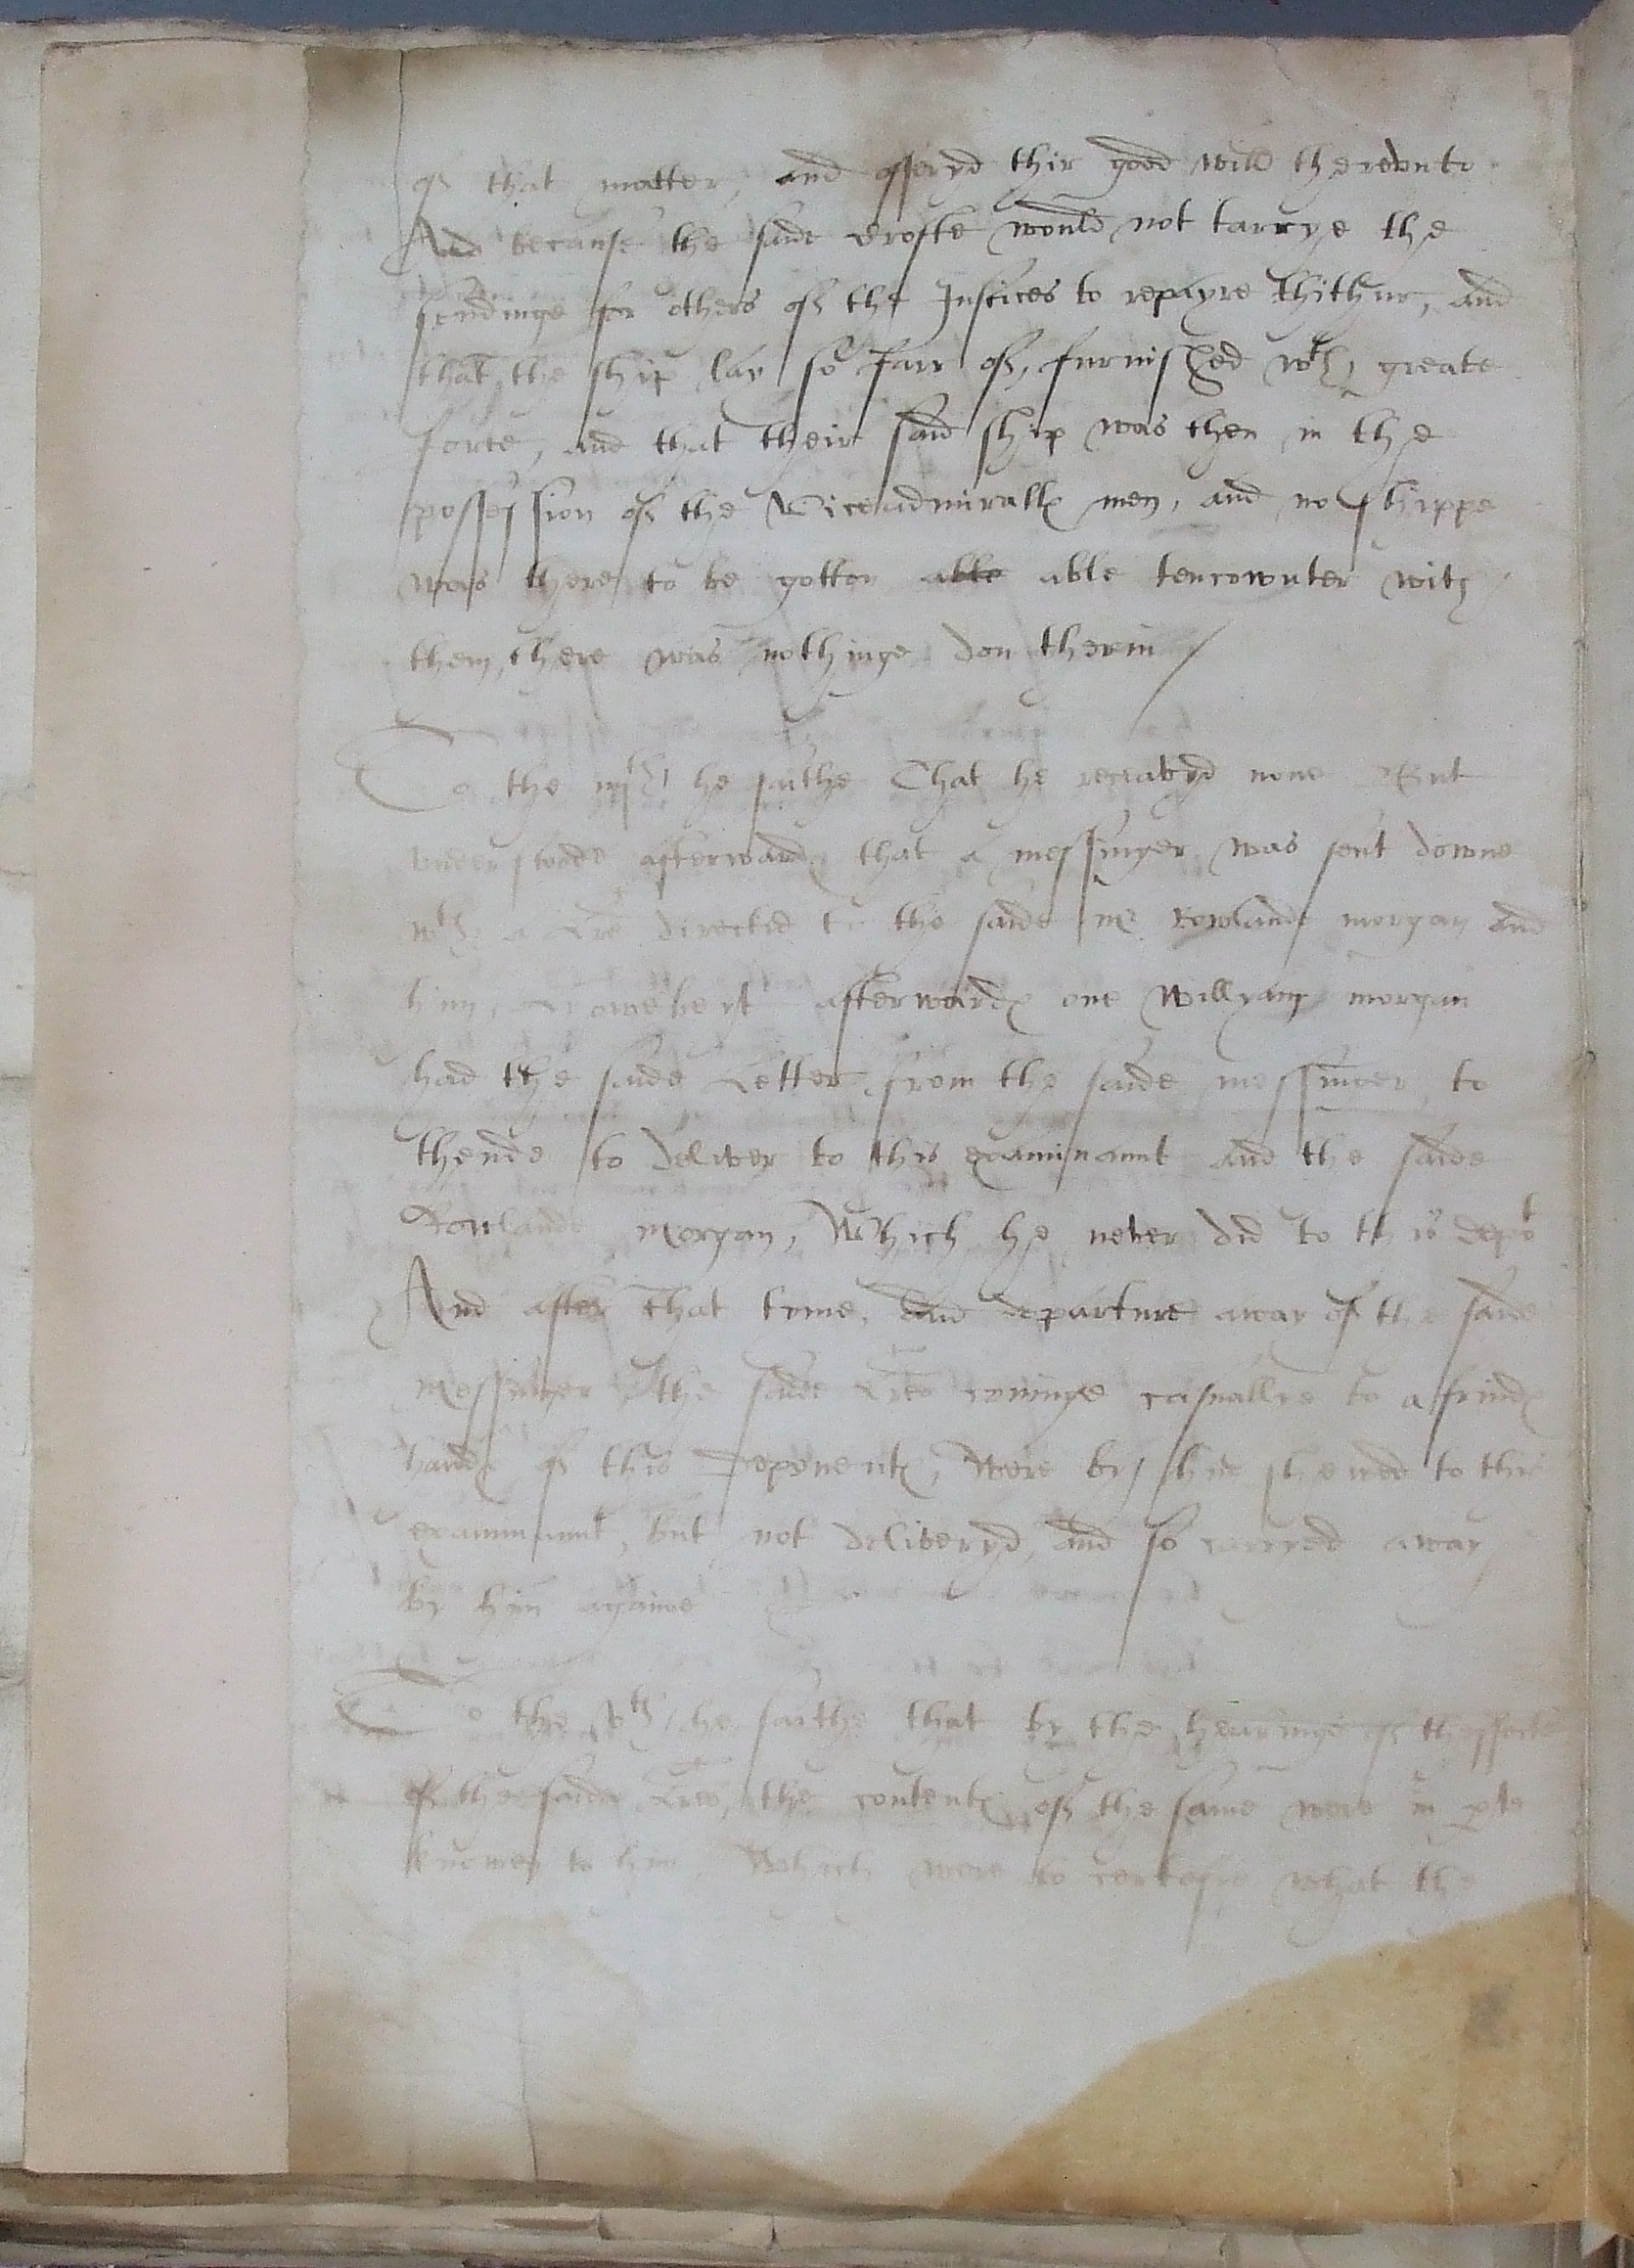 of that matter, and offeryd thir good will therevnto
And because the saide Froste would not tarrye the
sendinge for others of the Justices to repayre thithur, and
that the ship lay so farr of, furnished wth greate
force, and that their said ship was then in the
possession of the Viceadmiralls men, and no shippe
was there to be gotten able able tencownter with
them, there was nothinge don therin /
To the iiijth he saithe That he receavyd none But
vnderstoode afterwards that a messinger was sent downe
wth a lre directed to the saide mr Rowlande morgan and
him, Howebeyt afterwards one Willyam morgan
had the saide Letter from the saide messinger, to
thende to deliver to this examinannt and the saide
Rowlande Morgan, Which he never did to this dept
And after that tyme, and departure away of the saide
messinger the saide lres cominge casuallie to a frinds
hands of this Deponents, were by him shewed to this
examinannt, but not deliveryd, and so carryed away
by him againe
To the vth he saithe that by the hearinge of theffecte
of the saide lres, the contents of the same were in pte
knowen to him, Which were to certefye what the